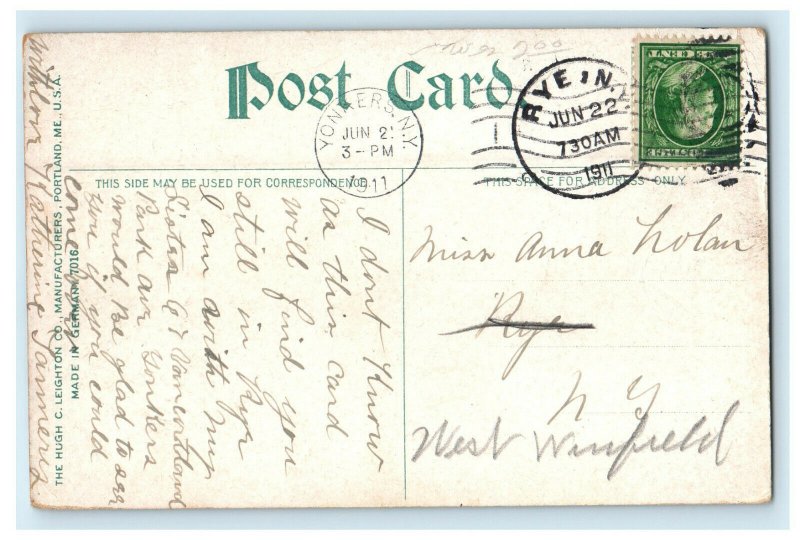 Post Card
YONKERS, N.Y.
JUN 21
3-PM
1911
RYE, N.
JUN 22
730AM
1911
THIS SIDE MAY BE USED FOR CORRESPONDENCE.
THIS SPACE FOR ADDRESS ONLY.
I dont Know
as this card
will find you
still in Rye
I am with my
Sister 67 Vancortland
Park ave Yonkers
would be glad to see
you if you could
come
Katherine
THE HUGH C. LEIGHTON CO., MANUFACTURERS, PORTLAND, ME., U.S.A.
MADE IN GERMANY. 7016
Miss Anna Nolan
Rye
N Y
West Winfield